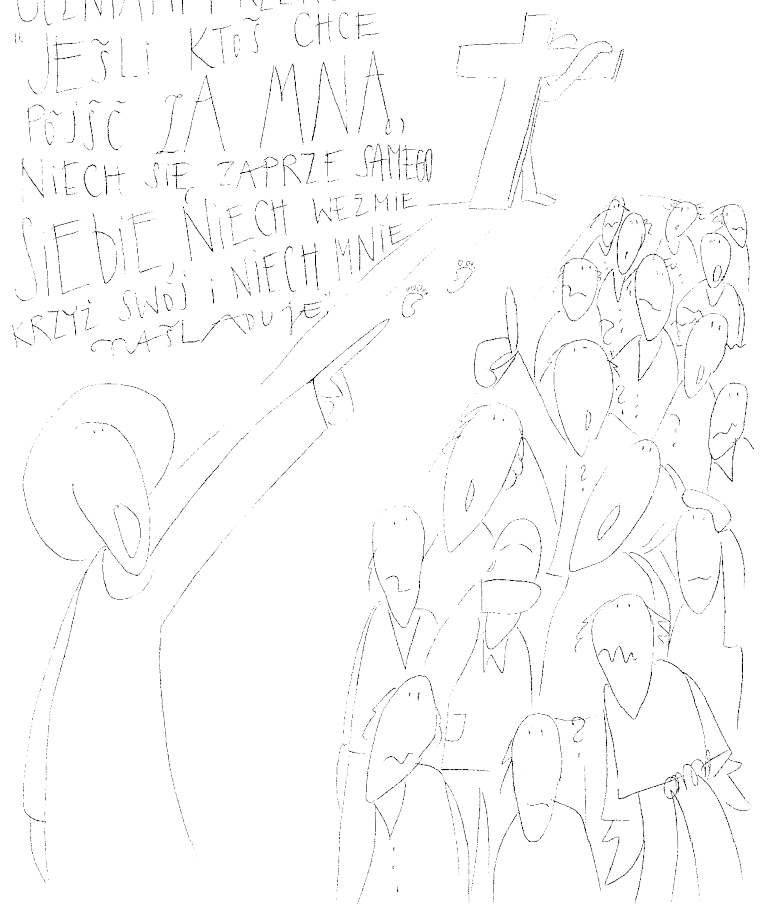 UCZNIAMI I RZEKŁ
"JEŚLI KTOŚ CHCE
PÓJŚĆ ZA MNĄ,
NIECH SIĘ ZAPRZE SAMEGO
SIEBIE, NIECH WEŹMIE
KRZYŻ SWÓJ i NIECH MNIE
NAŚLADUJE!
?
?
?
?
?
?